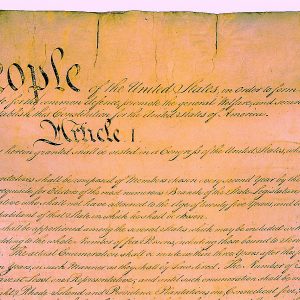 eople of the United States, in Order to form
to for the common defence, promote the general Welfare, and secure
establish this Constitution for the United States of America.
Article I
herein granted shall be vested in a Congress of the United States, wh
entatives shall be composed of Members chosen every second Year by the
requisite for Electors of the most numerous Branch of the State Legislature
ative who shall not have attained to the Age of twenty five Years, and
habitant of that State in which he shall be chosen.
shall be apportioned among the several States which may be included
adding to the whole Number of free Persons, including those bound to
The actual Enumeration shall be made within three Years after the
Years, in such Manner as they shall by Law direct. The Number of
have at Least one Representative; and until such enumeration shall be
Rhode Island and Providence Plantations one, Connecticut five,